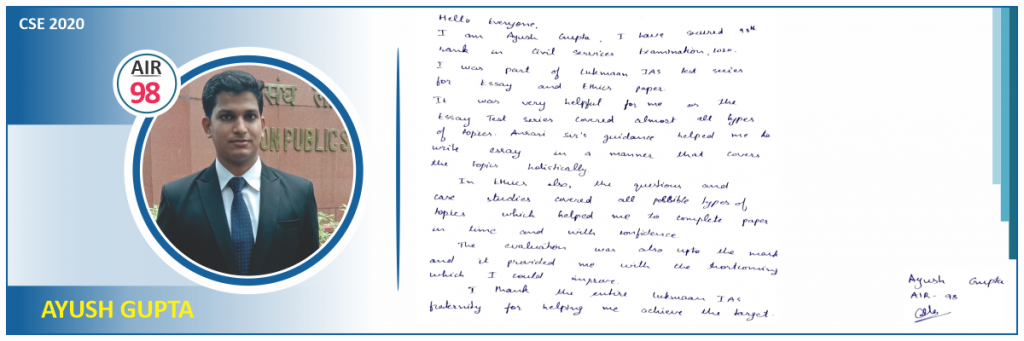 CSE 2020
AIR
98
संघ लो
ON PUBLIC S
AYUSH GUPTA
Hello Everyone,
I am Ayush Gupta, I have secured 98th
rank in Civil Services Examination, 2020.
I was part of Lukmaan IAS test series
for Essay and Ethics paper.
It was very helpful for me as the
Essay Test series covered almost all types
of topics. Ansari sir's guidance helped me to
write essay in a manner that covers
the topic holistically.
In Ethics also, the questions and
case studies covered all possible types of
topics which helped me to complete paper
in time and with confidence.
The evaluation was also upto the mark
and it provided me with the shortcoming
which I could improve.
I thank the entire Lukmaan IAS
fraternity for helping me achieve the target.
Ayush Gupta
AIR - 98